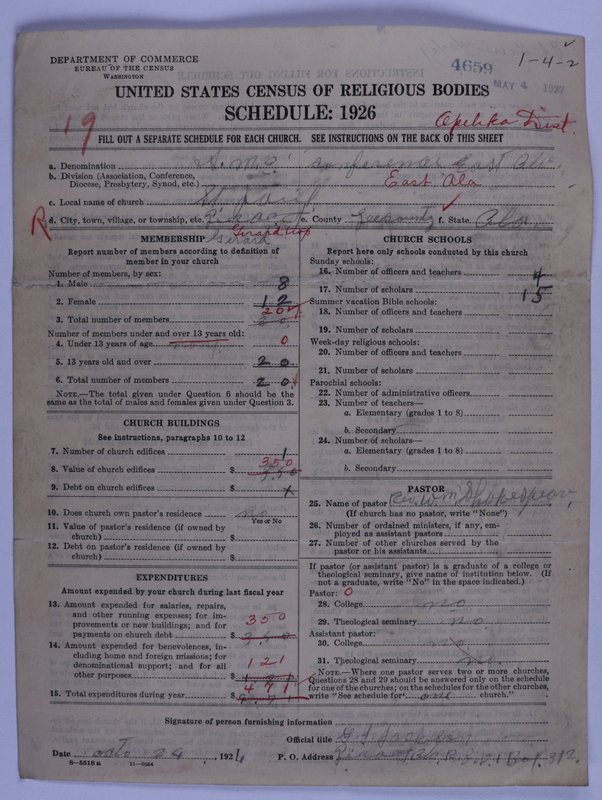 DEPARTMENT OF COMMERCE
BUREAU OF THE CENSUS
WASHINGTON
4659
MAY 4 1927
1-4-2
UNITED STATES CENSUS OF RELIGIOUS BODIES
SCHEDULE: 1926
19
Opelika Dist.
FILL OUT A SEPARATE SCHEDULE FOR EACH CHURCH. SEE INSTRUCTIONS ON THE BACK OF THIS SHEET
a. Denomination conference East Ala.
b. Division (Association, Conference, Diocese, Presbytery, Synod, etc.) East Ala
c. Local name of church St Paul
R d. City, town, village, or township, etc. e. County Lee County f. State Ala
Girard
MEMBERSHIP
Report number of members according to definition of
member in your church
Number of members, by sex:
1. Male 8
2. Female 12
3. Total number of members 20
Number of members under and over 13 years old:
4. Under 13 years of age 0
5. 13 years old and over 20
6. Total number of members 20
NOTE.—The total given under Question 6 should be
same as the total of males and females given under Question 3.
CHURCH BUILDINGS
See instructions, paragraphs 10 to 12
7. Number of church edifices 1
8. Value of church edifices $ 350
9. Debt on church edifices $ x
10. Does church own pastor's residence? no
Yes or No
11. Value of pastor's residence (if owned by
church) $
12. Debt on pastor's residence (if owned by
church) $
EXPENDITURES
Amount expended by your church during last fiscal year
13. Amount expended for salaries, repairs,
and other running expenses; for improvements or new buildings; and for
payments on church debt $ 350
14. Amount expended for benevolences, including home and foreign missions; for
denominational support; and for all
other purposes $ 121
15. Total expenditures during year $ 471
CHURCH SCHOOLS
Report here only schools conducted by this church
Sunday schools:
16. Number of officers and teachers 4
17. Number of scholars 15
Summer vacation Bible schools:
18. Number of officers and teachers
19. Number of scholars
Week-day religious schools:
20. Number of officers and teachers
21. Number of scholars
Parochial schools:
22. Number of administrative officers
23. Number of teachers—
a. Elementary (grades 1 to 8)
b. Secondary
24. Number of scholars—
a. Elementary (grades 1 to 8)
b. Secondary
PASTOR
25. Name of pastor Rev. Wm
(If church has no pastor, write "None")
26. Number of ordained ministers, if any, employed as assistant pastors
27. Number of other churches served by the
pastor or his assistants
If pastor (or assistant pastor) is a graduate of a college or
theological seminary, give name of institution below. (If
not a graduate, write "No" in the space indicated.)
Pastor: 0
28. College no
29. Theological seminary no
Assistant pastor:
30. College no
31. Theological seminary no
NOTE.—Where one pastor serves two or more churches,
Questions 28 and 29 should be answered only on the schedule
for one of the churches; on the schedules for the other churches,
write "See schedule for one church."
Signature of person furnishing information
Official title G. T. Jackson
Date Oct. 24, 1926 P. O. Address Box 312
8-5518 a 11-9064